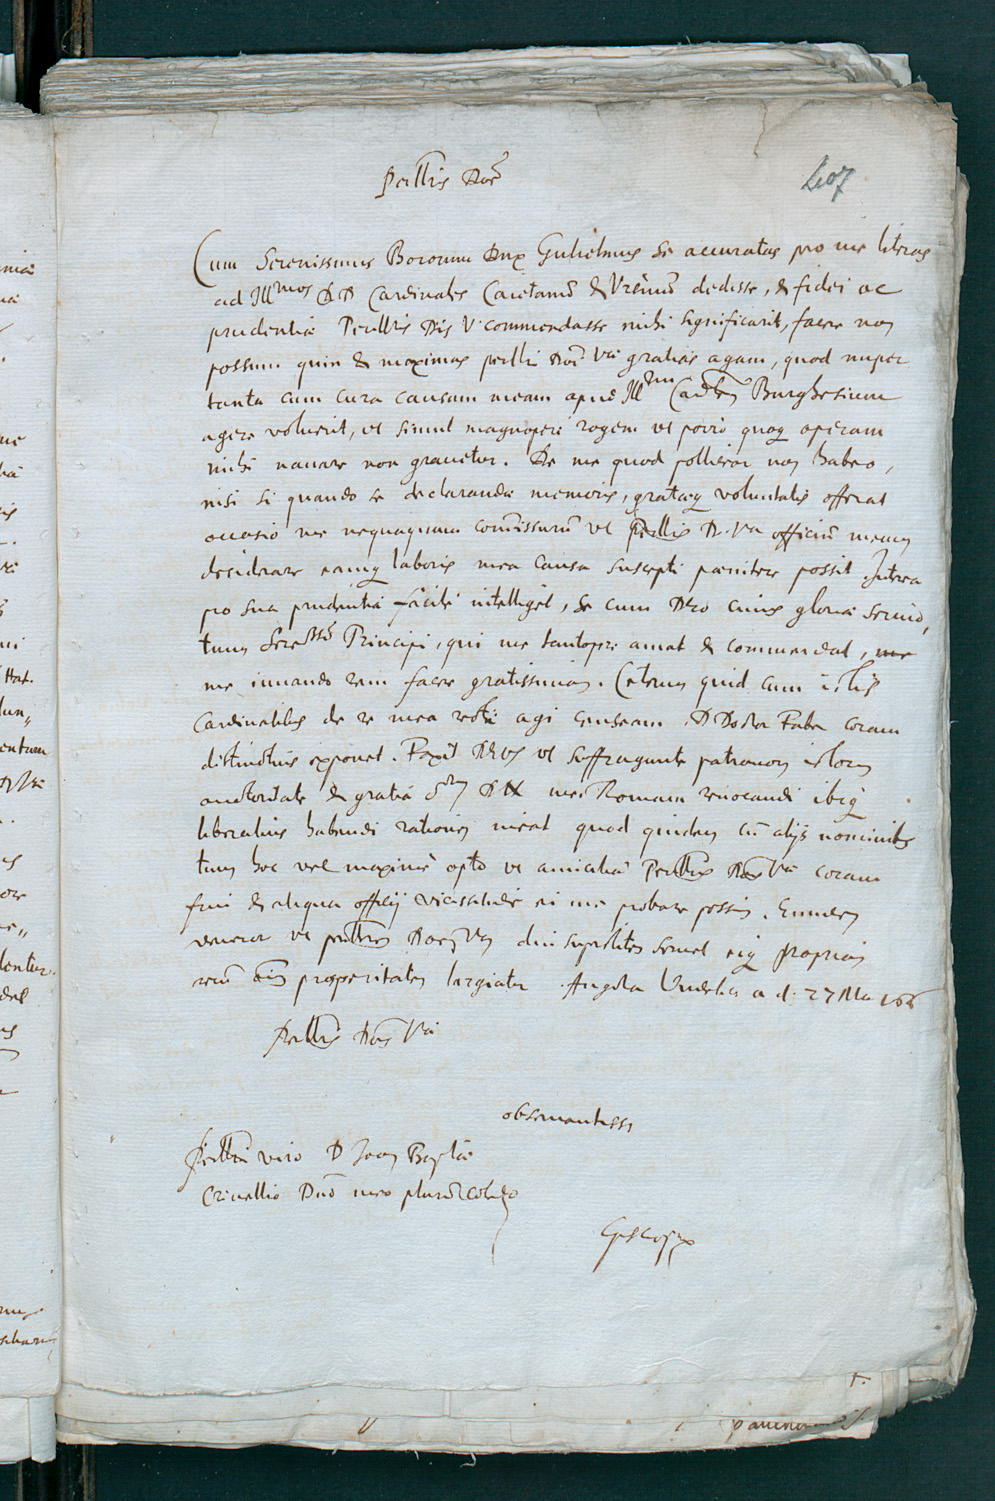 Perillris Dne
407
Cum Serenissimus Boiorum Dux Gulielmus se accuratas pro me literas
ad Illmos DD Cardinales Caietanū & Ursinū dedisse, & fidei ac
prudentiæ Perillris Dis V commendasse mihi significarit, facere non
possum quin & maximas perilli Doi Væ gratias agam, quod nuper
tanta cum cura causam meam apud Illmm Cardlem Burghesium
agere voluerit, ut simul magnopere rogem ut porro quoq operam
mihi navare non gravetur. De me quod pollicear non habeo,
nisi si quando se declarandæ memoris, gratæq voluntatis offerat
occasio me nequaquam comissurū ut Perillis D. Va officiū meum
desiderare eamq laboris mea causa suscepti pænitere possit. Interea
pro sua prudentia facilè intelliget, se cum Deo cuius gloriæ servio,
tum Seremo Principi, qui me tantopere amat & commendat, me
me iuvando rem facere gratissimam. Ceterum quid cum istis
Cardinalibus de re mea rectè agi censeam D Doctor Faber coram
distinctius exponet. Faxit Deus ut suffragante patronorum istorum
auctoritate & gratia Smus DN mei Romam revocandi ibiq
liberalius habendi rationem ineat quod quidem cū alijs nominibs
tum hoc vel maximè opto ut amicitia Perillris Dois Væ coram
frui & aliqua officij vicissitudine ei me probare possim. Eundem
veneror ut perillrem Doem Vam diu sospitem servet eiq propriam
rerū oim prosperitatem largiatur. Augusta Vindelic. a d. 27 Ma
Perillris Dois Væ
observantiss
Perillri viro D Joan Baptæ
Crivellio Dno meo plurm colendo